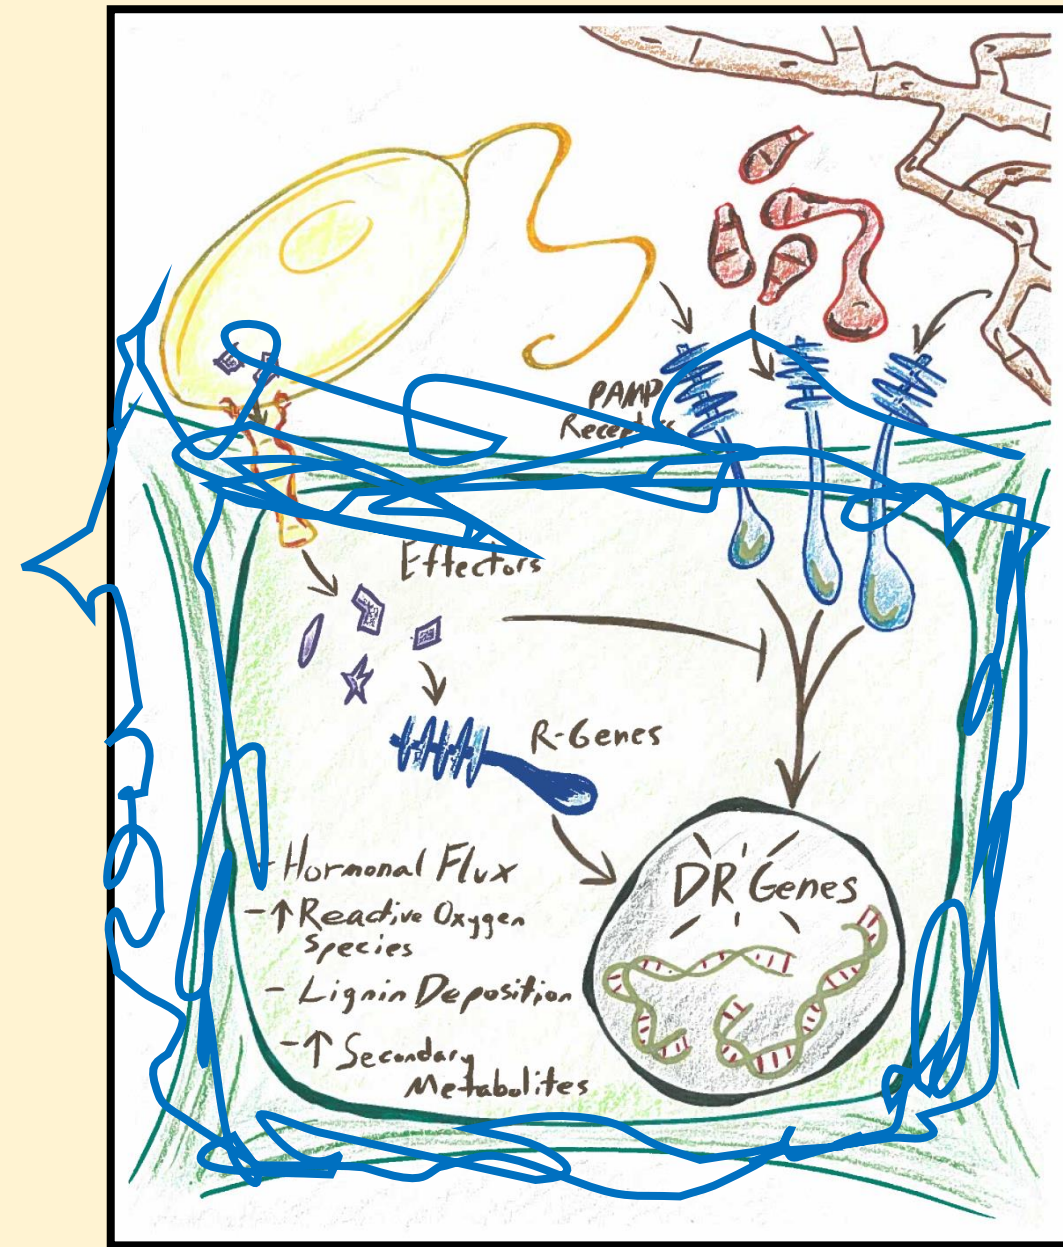 PAMP
Receptors
Effectors
R-Genes
DR Genes
- Hormonal Flux
- ↑ Reactive Oxygen
Species
- Lignin Deposition
- ↑ Secondary
Metabolites